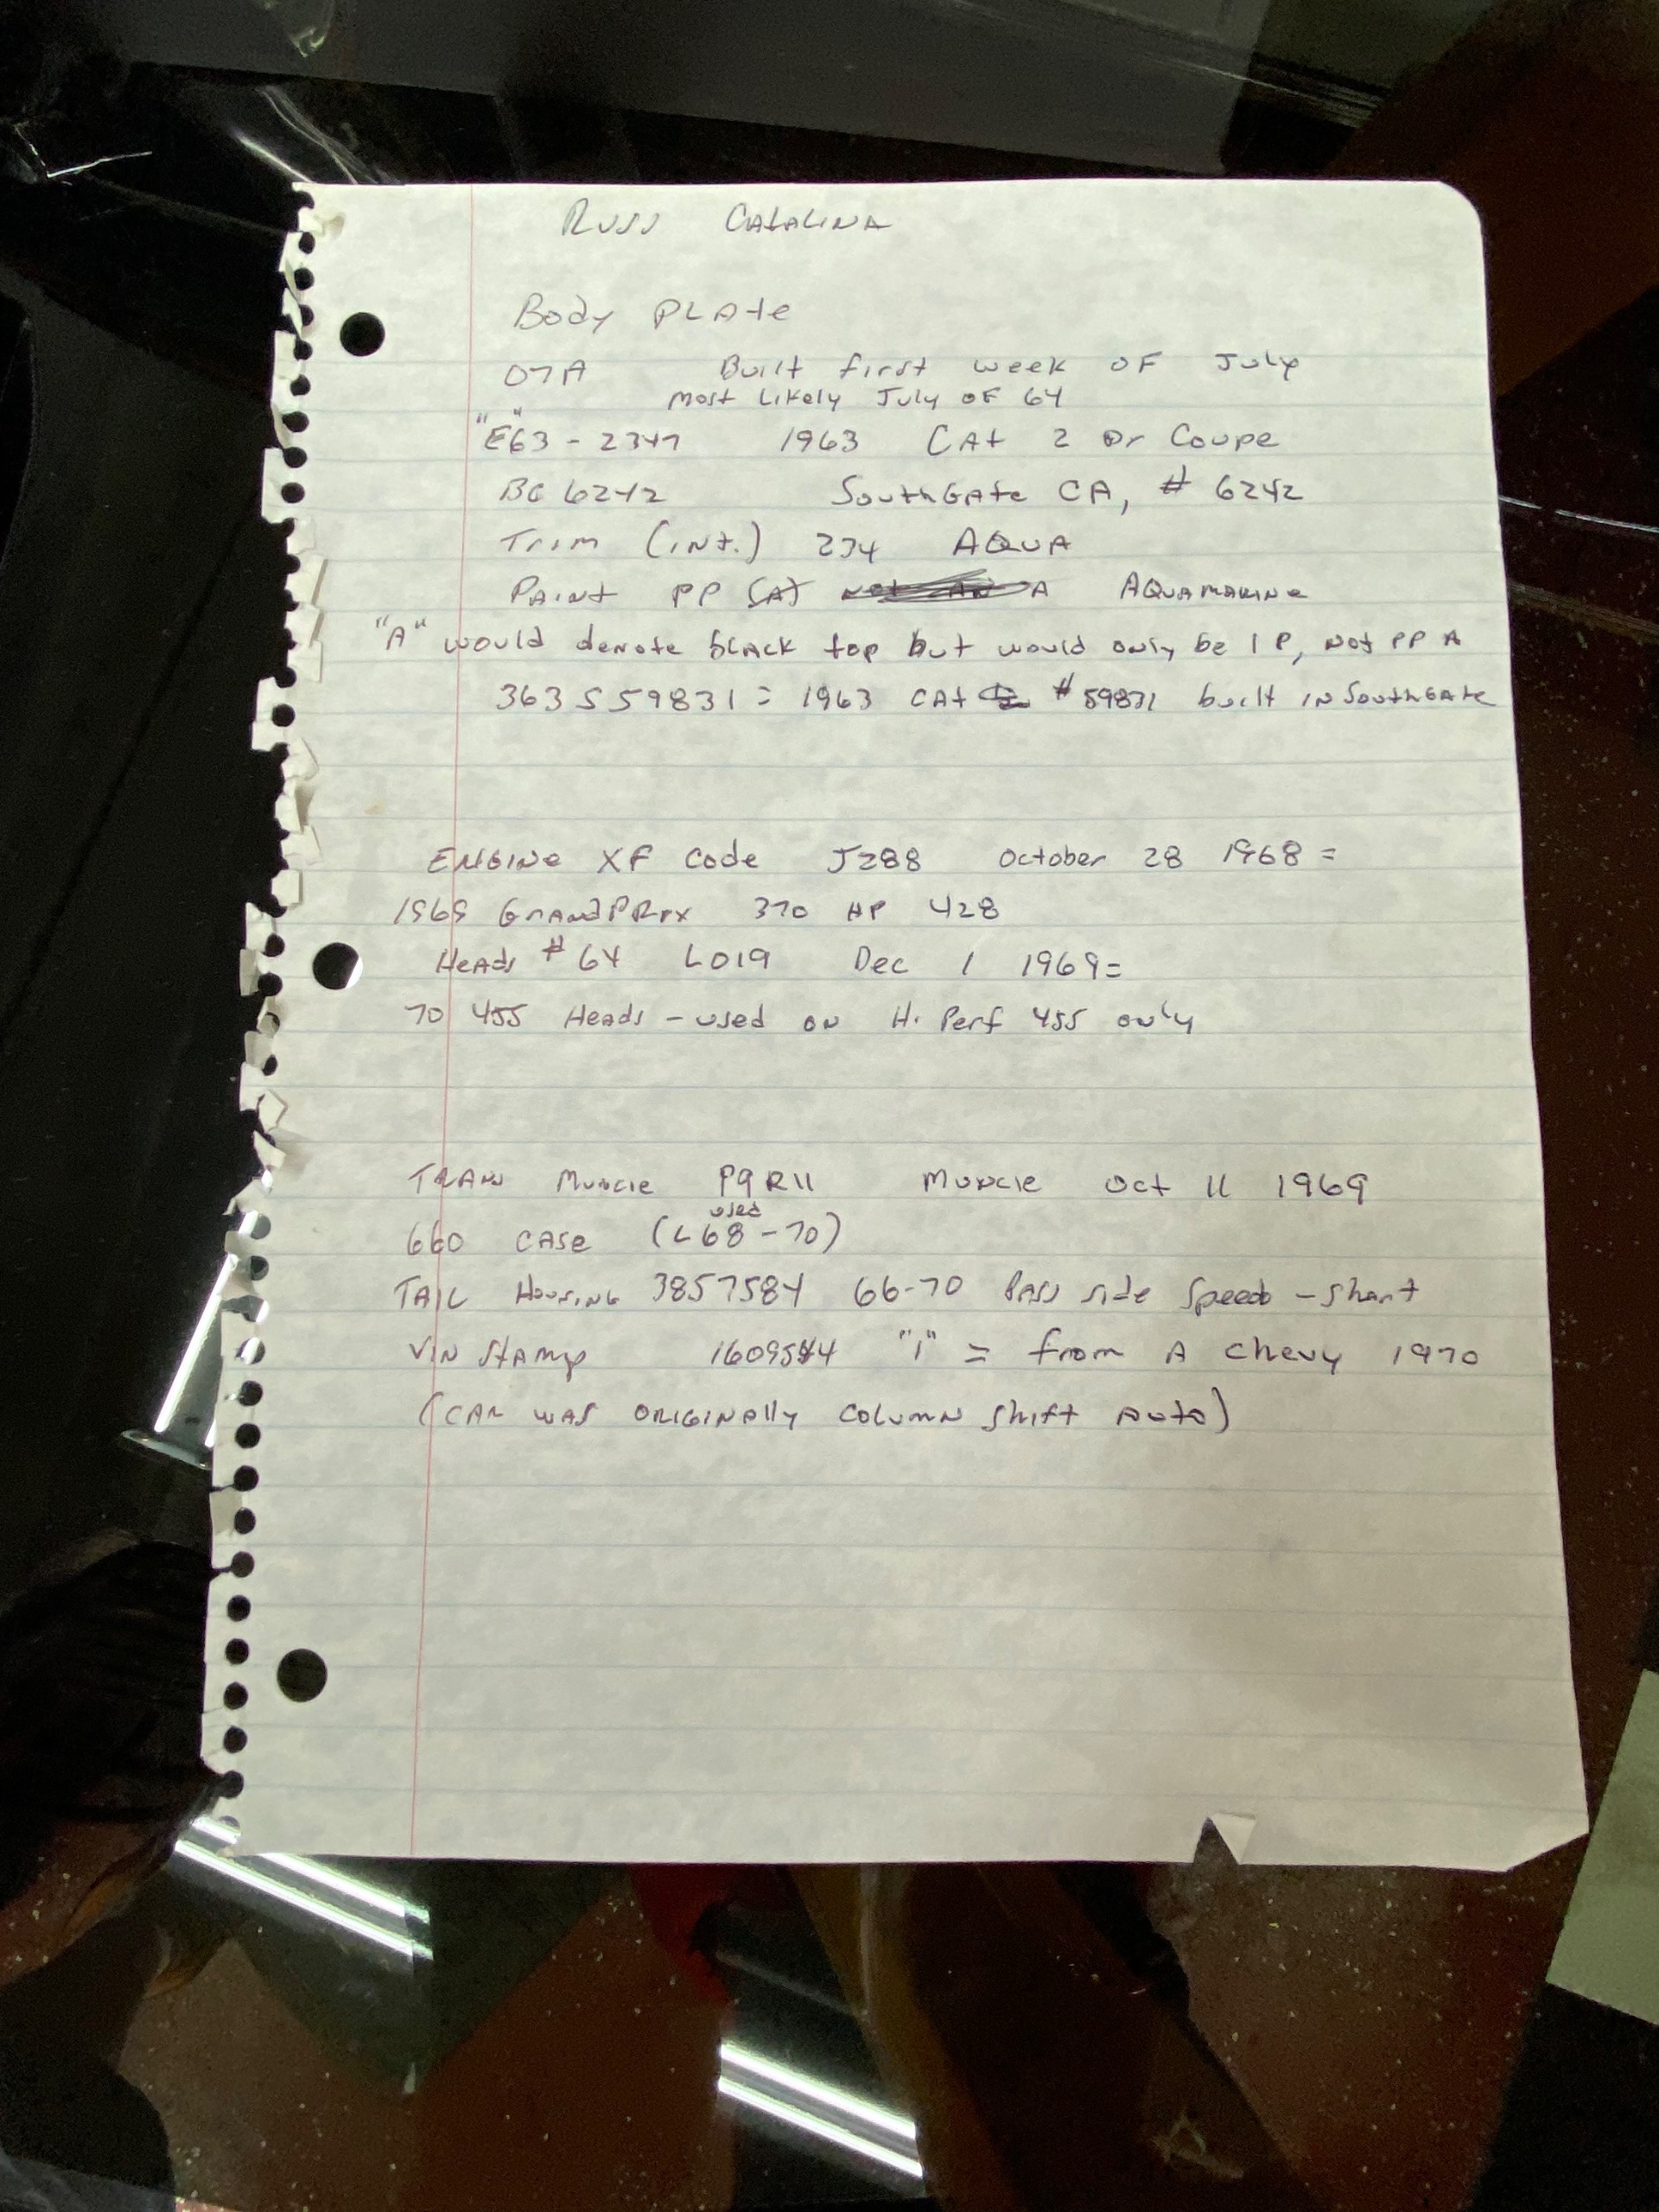 Russ Catalina
Body Plate
07A Built first week of July
most likely July of 64
"E"63-2347 1963 Cat 2 Dr Coupe
BC 6242 SouthGate CA, # 6242
Trim (int.) 234 Aqua
Paint PP (A) A Aquamarine
"A" would denote black top but would only be 1 P, not PP A
363S59831 = 1963 Cat #59831 built in SouthGate
Engine XF Code J288 October 28 1968 =
1969 Grand Prix 370 HP 428
Heads #64 L019 Dec 1 1969=
70 455 Heads - used on Hi Perf 455 only
Trans Muncie P9R11 Muncie Oct 11 1969
used
660 case (L68-70)
Tail Housing 3857584 66-70 Pass side speedo - short
VIN Stamp 1609544 "1" = from A Chevy 1970
(car was originally column shift auto)